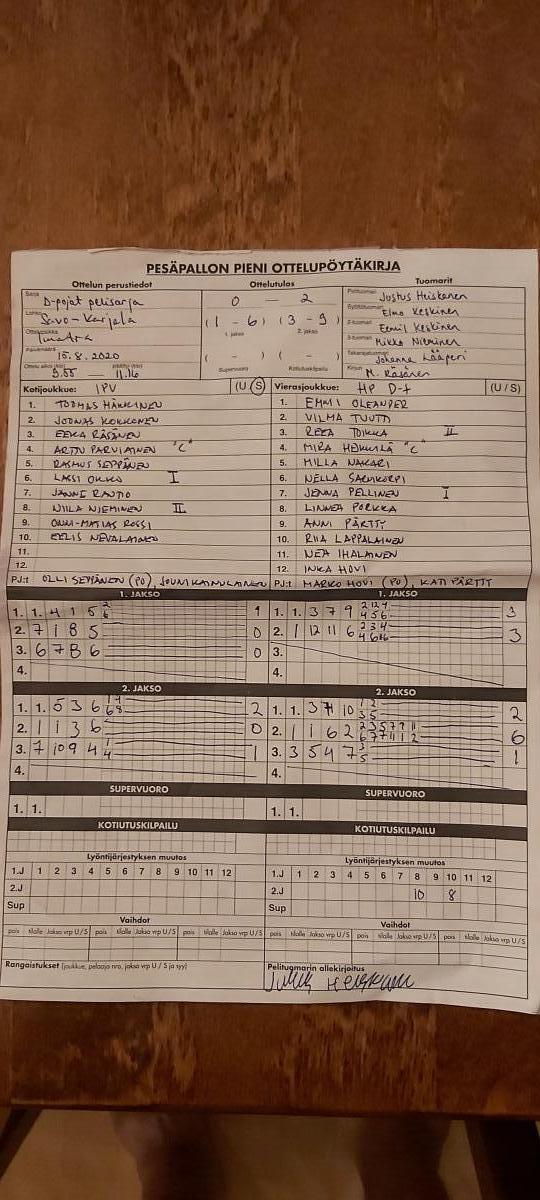 PESÄPALLON PIENI OTTELUPÖYTÄKIRJA
Ottelun perustiedot Ottelutulos Tuomarit
Sarja D-pojat pelisarja
0 — 2
Pelituomari Justus Heiskanen
Savo-Karjala
(1 - 6) (3 - 9)
1. jakso 2. jakso
Elmo Keskinen
Imatra
2-tuomari Eemil Keskinen
15.8.2020
( - ) ( - )
3-tuomari Mikko Nieminen
Takarajatuomari Johanna Lääperi
9.55 — 11.16
Supervuoro Kotiutuskilpailu
Kirjuri M. Räsänen
Kotijoukkue: IPV (U/S) Vierasjoukkue: HP D-t (U/S)
1. TUOMAS HÄKKINEN 1. EMMI OLEANDER
2. JOONAS KOKKONEN 2. VILMA TUUTTI
3. EEKA RÄSÄNEN 3. REEA TOIKKA II
4. ARTTU PARVIAINEN "C" 4. MIRA HEIKKILÄ "C"
5. RASMUS SEPPÄNEN 5. MILLA NAKARI
6. LASSI OKKO I 6. NELLA SARVIKORPI
7. JANNE RAUTIO 7. JENNA PELLINEN I
8. NIILA NIEMINEN II 8. LINNEA PORKKA
9. ONNI-MATIAS ROSSI 9. ANNI PÄRTTY
10. EELIS NEVALAINEN 10. RIIA LAPPALAINEN
11. 11. NEA IHALAINEN
12. 12. INKA HOVI
PJ:t OLLI SEPPÄNEN (PO), JOUNI KAINULAINEN PJ:t MARKO HOVI (PO), KATI PÄRTTY
1. JAKSO 1. JAKSO
1. 1. 4 1 5 2 6 1 1. 1. 3 7 9 2 12 4 4 5 6 3
2. 7 1 8 5 0 2. 1 12 11 6 2 3 4 4 6 3
3. 6 7 8 6 0 3.
4. 4.
2. JAKSO 2. JAKSO
1. 1. 5 3 6 1 7 6 8 2 1. 1. 3 10 1 2 3 5 2
2. 1 1 3 6 0 2. 1 1 6 2 2 3 5 7 9 11 6 7 7 11 1 2 6
3. 7 10 9 4 1 4 1 3. 3 5 4 7 3 5 1
4. 4.
SUPERVUORO SUPERVUORO
1. 1. 1. 1.
KOTIUTUSKILPAILU KOTIUTUSKILPAILU
Lyöntijärjestyksen muutos Lyöntijärjestyksen muutos
1.J 1 2 3 4 5 6 7 8 9 10 11 12 1.J 1 2 3 4 5 6 7 8 9 10 11 12
2.J 2.J 10 8
Sup Sup
Vaihdot Vaihdot
pois tilalle Jakso vrp U/S pois tilalle Jakso vrp U/S pois tilalle Jakso vrp U/S pois tilalle Jakso vrp U/S pois tilalle Jakso vrp U/S pois tilalle Jakso vrp U/S
Rangaistukset (joukkue, pelaaja nro, jakso vrp U/S ja syy) Pelituomarin allekirjoitus